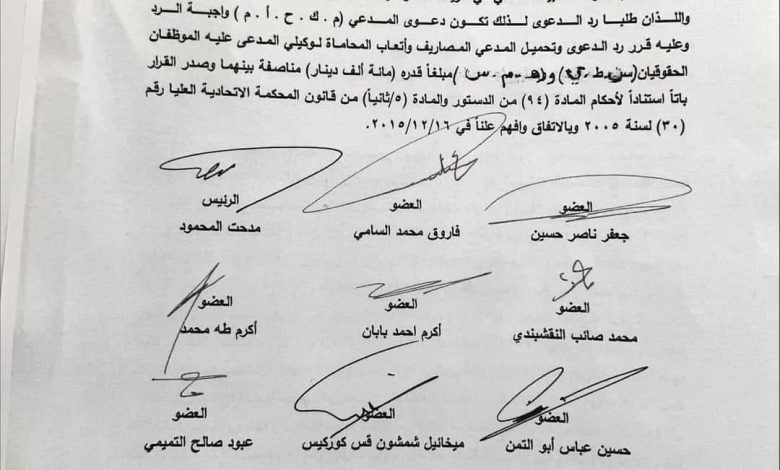 واللذان طلبا رد الدعوى لذلك تكون دعوى المدعي (م . ك . ح . أ . م) واجبة الرد
وعليه قرر رد الدعوى وتحميل المدعي المصاريف وأتعاب المحاماة لوكيلي المدعى عليه الموظفان
الحقوقيان (س. ط. ي) و(ه. م. س) مبلغاً قدره (مائة ألف دينار) مناصفة بينهما وصدر القرار
باتاً استناداً لأحكام المادة (٩٤) من الدستور والمادة (٥/ثانياً) من قانون المحكمة الاتحادية العليا رقم
(٣٠) لسنة ٢٠٠٥ وبالاتفاق وافهم علناً في ٢٠١٥/١٢/١٦.
العضو العضو الرئيس
جعفر ناصر حسين فاروق محمد السامي مدحت المحمود
العضو العضو العضو
محمد صائب النقشبندي أكرم احمد بابان أكرم طه محمد
العضو العضو العضو
حسين عباس أبو التمن ميخائيل شمشون قس كوركيس عبود صالح التميمي